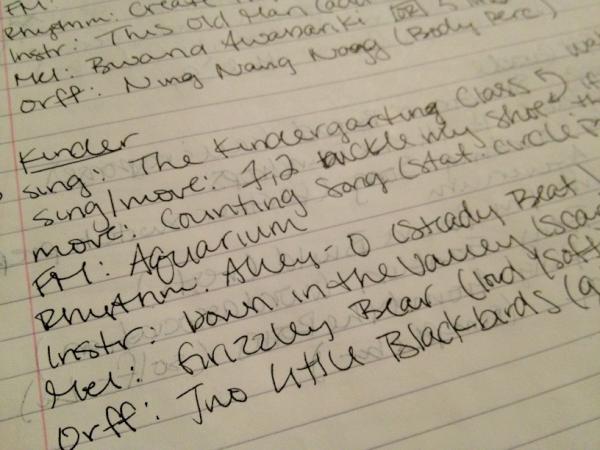 FM:
Rhythm: Create
Instr: This Old Man (add
Mel: Bwana Awabariki
Orff: Ning Nang Nong (Body Perc)
Kinder
Sing: The Kindergarting Class
Sing/move: 1,2 buckle my shoe if
move: Counting Song (stat. circle
FM: Aquarium
Rhythm: Alley-O (Steady Beat)
Instr: Down in the Valley (sca
Mel: Grizzley Bear (loud/soft
Orff: Two Little Blackbirds (a